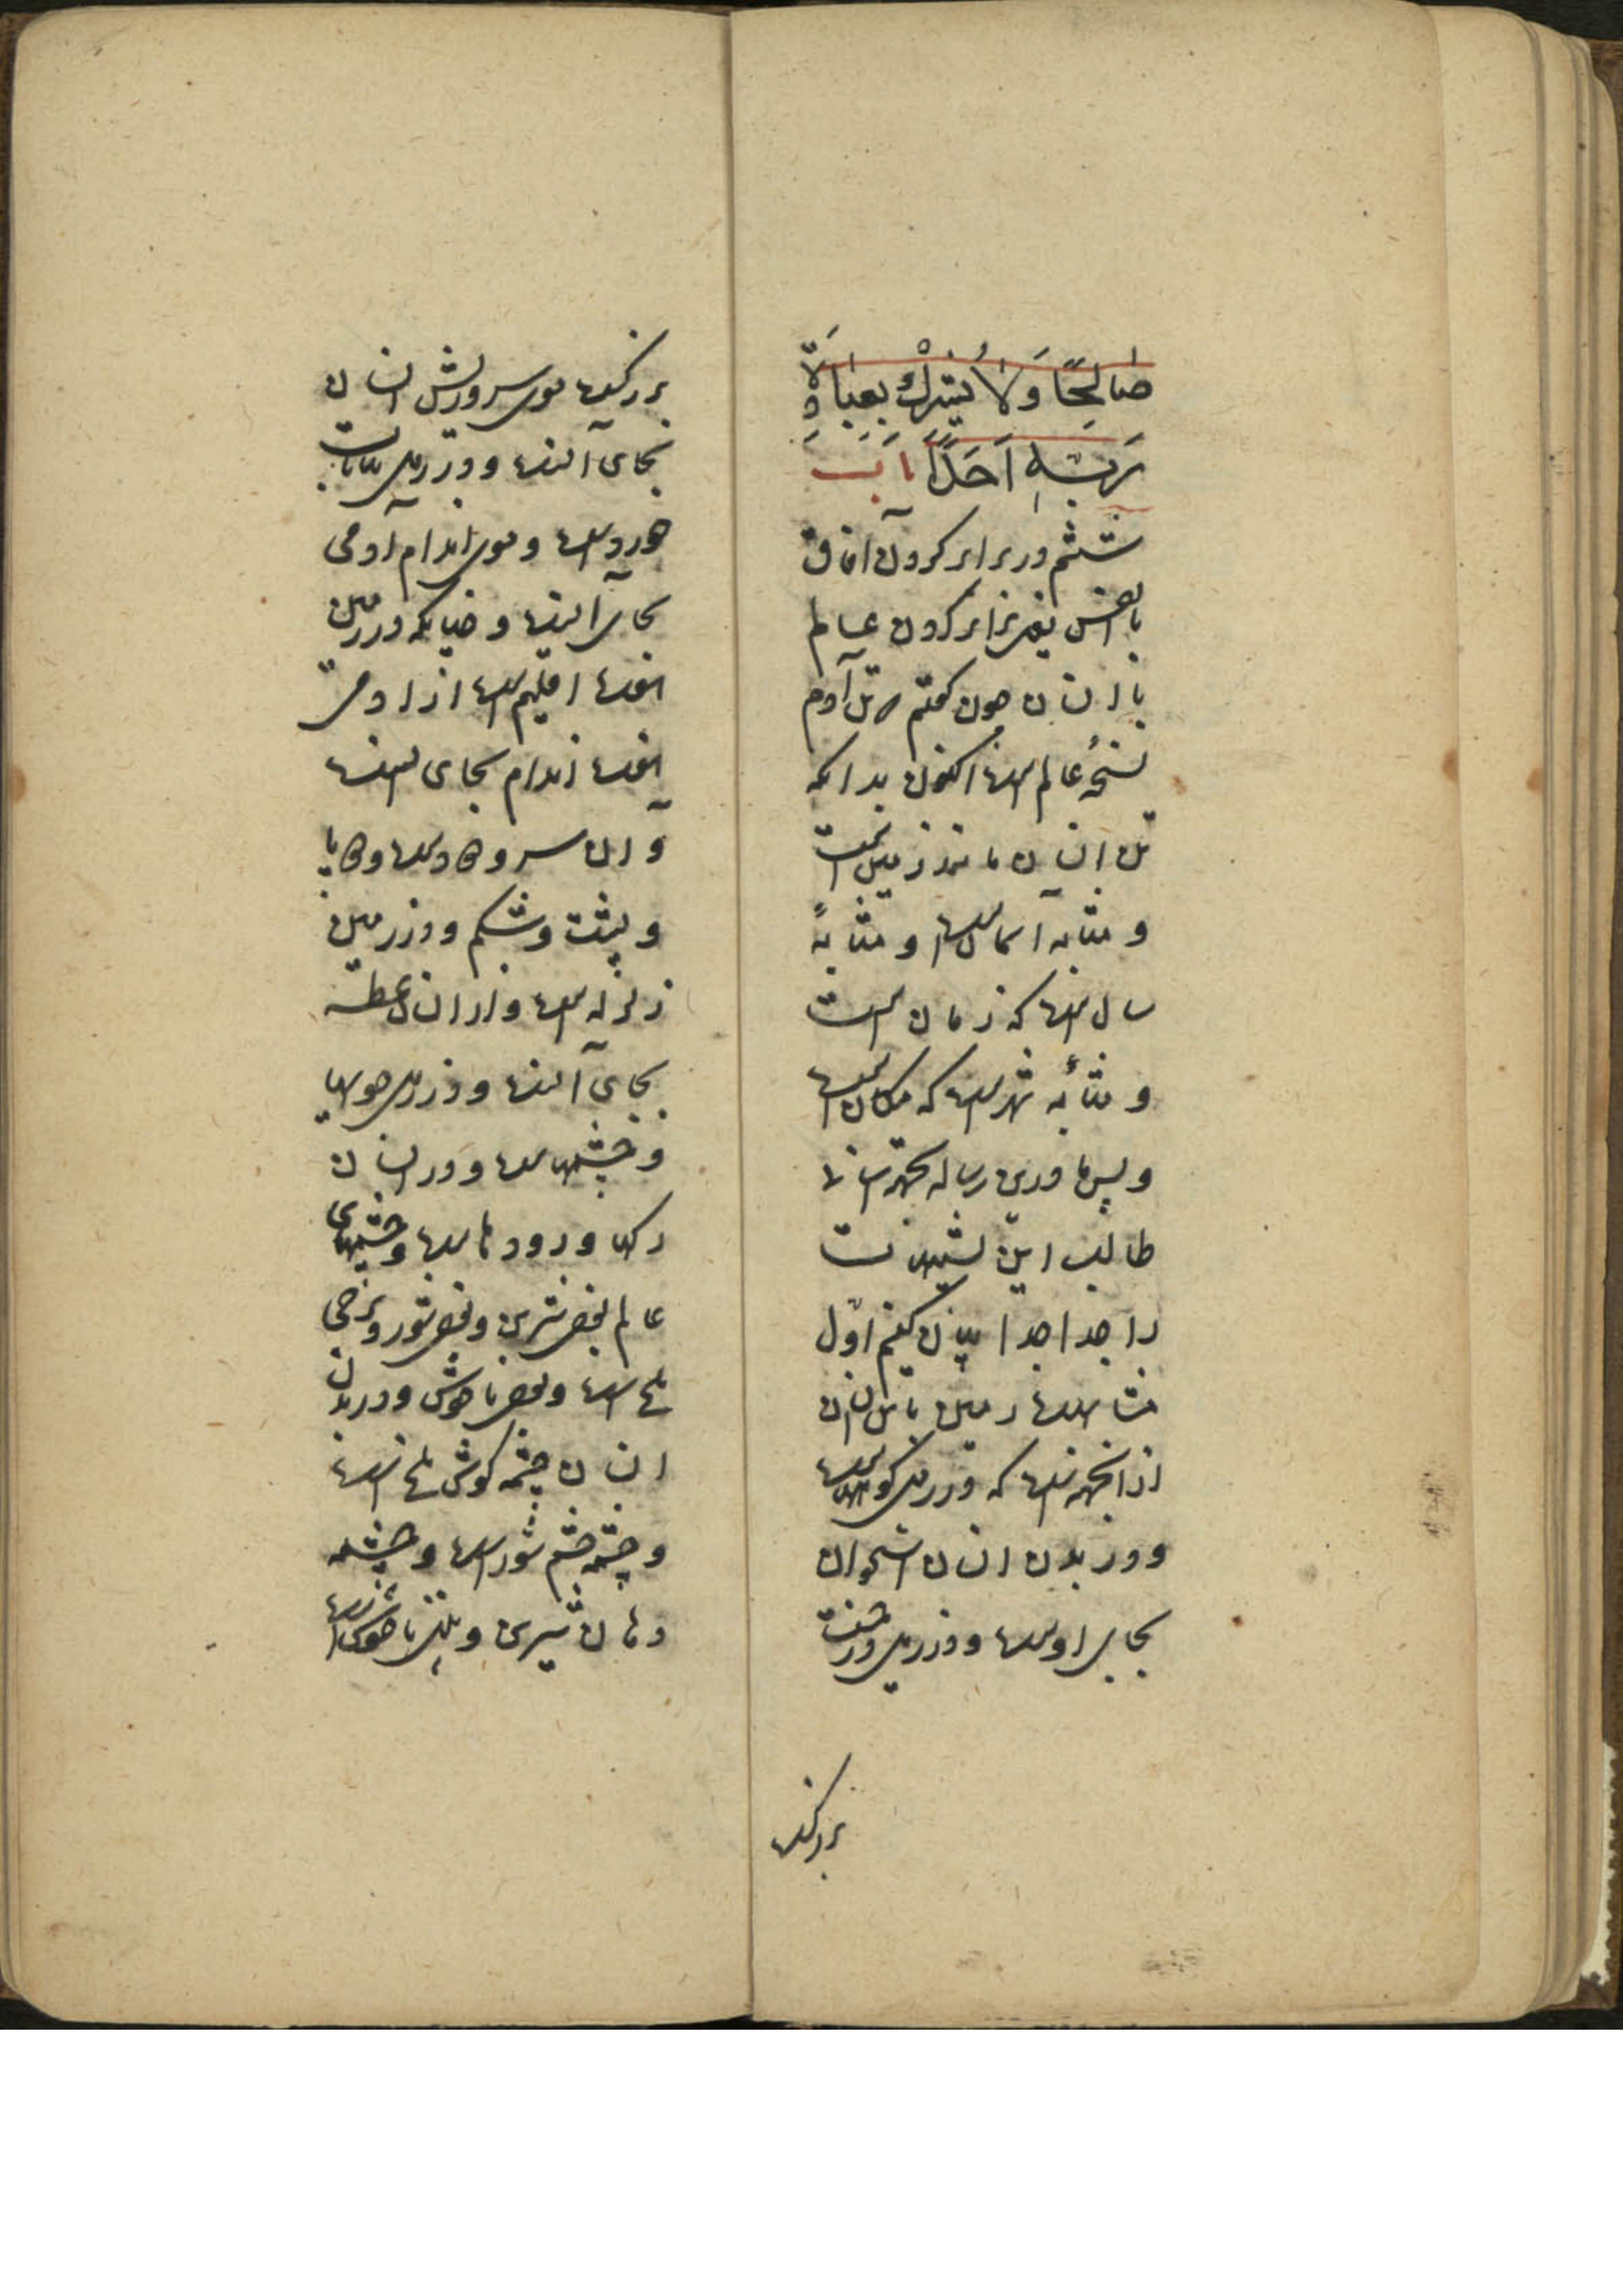 صَالِحًا وَلَا یُشْرِكْ بِعِبَادَةِ
رَبِّهِ اَحَدًا بَاب
ششم در برابر کردن آفاق
با انفس یعنی برابر کردن عالم
با انسان چون گفتم که تن آدم
نسخهٔ عالم است اکنون بدانکه
تن انسان مانند زمین است
و مثابه آسمان است و مثابهٔ
سال است که زمان است
و مثابه شهر است که مکان است
و پس ما درین رساله بجهة
طالب این
را جدا جدا بیان کنیم اول
مشابهت زمین با تن انسان
از آنجهت است که در زمین کوههاست
و در بدن انسان استخوان
بجای اوست و در زمین درخت
بزرگست
بزرگست موی سر و ریش انسان
بجای آنست و در زمین نباتات
خورد است و موی اندام آدمی
بجای آنست و چنانکه در زمین
هفت اقلیم است از آدمی
هفت اندام بجای آنست
و آن سر و دو دست و دو پا
و پشت و شکم و در زمین
زلزله است و از انسان عطسه
بجای آنست و در زمین جویها
و چشمهاست و در انسان
رگها و رودهاست و چشمهای
عالم بعضی شیرین و بعضی شور و برخی
تلخ است و بعضی ناخوش و در بدن
انسان چشمه گوش تلخ است
و چشمه چشم شور است و چشمه
دهان شیرین و بینی ناخوش است